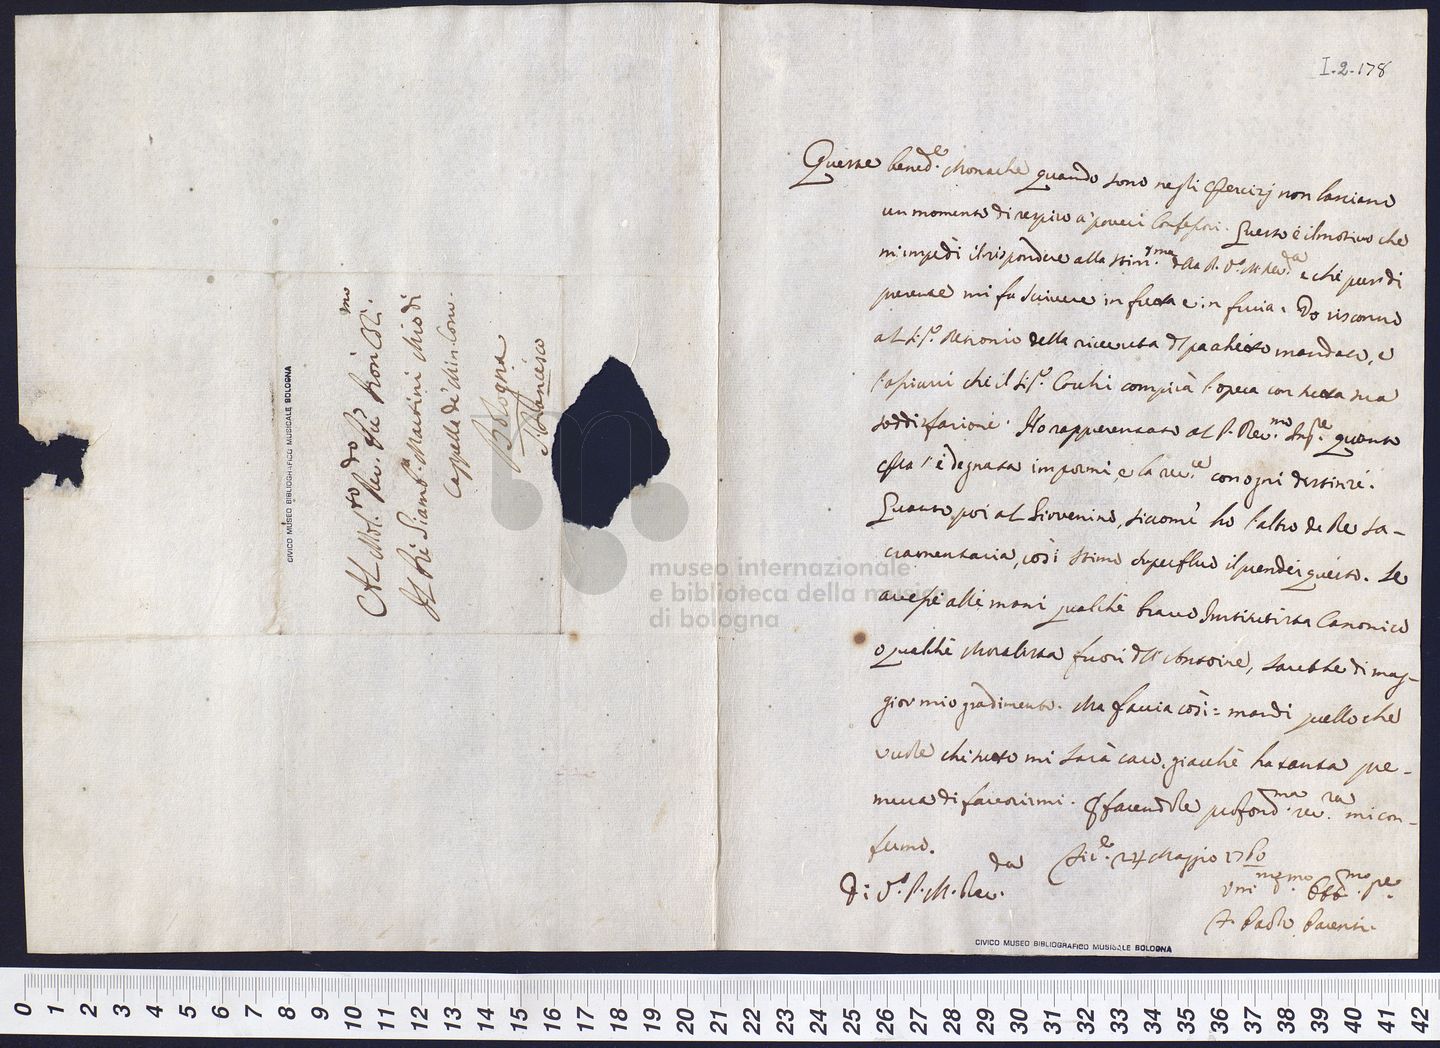 I.2.178
Queste bened.e Monache quando sono negli Esercizj non lasciano
un momento di respiro a' poveri Confessori. Questo è il motivo che
m'impedì il rispondere alla stim.ma della P. V. M. Rev.da e che pur di
presente mi fa scrivere in fretta e in furia. Do riscontro
al S.r Petronio della ricevuta del pachetto mandato, e
l'assicuri che il S.r Cochi compirà l'opera con tutta sua
soddisfazione. Ho rappresentato al P. Rev.mo Inq.re quanto
essa s'è degnata impormi, e la rev.ce con ogni distinz.e.
Quanto poi al Giovenino, siccome ho l'altro de Re Sa-
cramentaria, così stimo superfluo il prender questo. Se
avesse alle mani qualche bravo Institutista Canonico
o qualche Moralista fuori dell' Antoine, sarebbe di mag-
gior mio gradimento. Ma faccia così: mandi quello che
vuole che tutto mi sarà caro, giacchè ha tanta pre-
mura di favorirmi. Facendole profond.ma rev.za mi con-
fermo.
di V.a P. M. Rev.da
24 Maggio 1760
Um.mo Obb.mo
F. Paolo Parenti
Al Mol.to Rev.do P.re Pron Col.mo
Il P.re Giamb.a Martini M.ro di
Cappella de' Min. Conv.
Bologna
S. Francesco
CIVICO MUSEO BIBLIOGRAFICO MUSICALE BOLOGNA
CIVICO MUSEO BIBLIOGRAFICO MUSICALE BOLOGNA
museo internazionale
e biblioteca della musica
di bologna
0 1 2 3 4 5 6 7 8 9 10 11 12 13 14 15 16 17 18 19 20 21 22 23 24 25 26 27 28 29 30 31 32 33 34 35 36 37 38 39 40 41 42